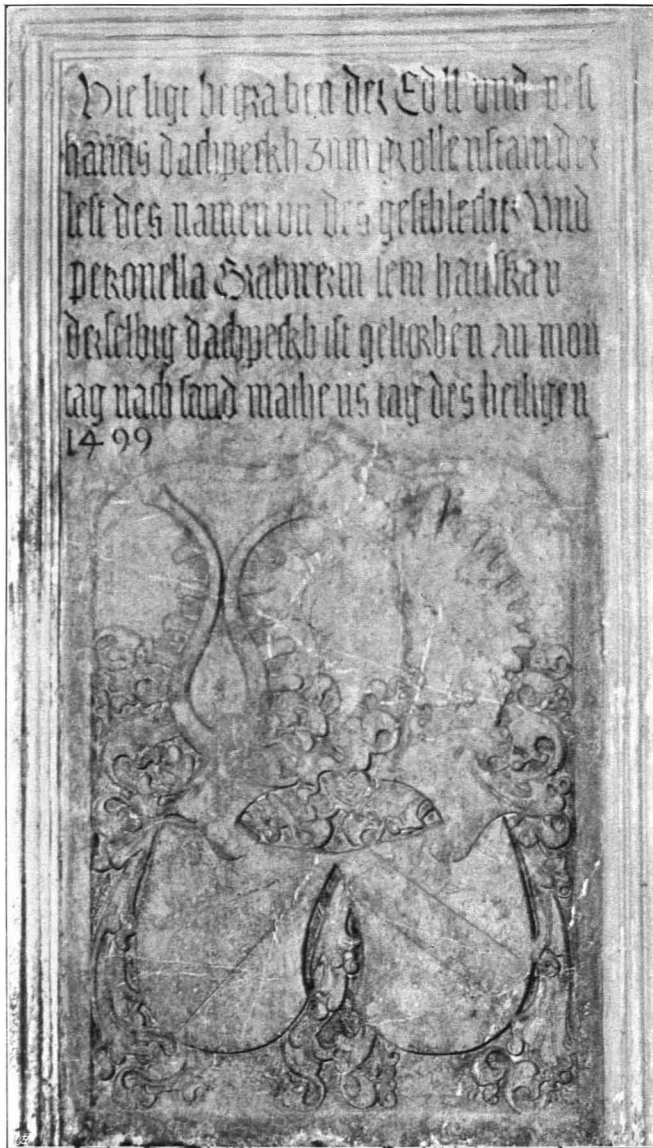 Hie ligt begraben der Edll vnd vest
hanns dachpeckh zum grollenstain der
lest des namen vn des geschlecht Vnd
petronella sein hausfrav
derselbig dachpeckh ist gestorben An mon
tag nach sand matheus tag des heiligen
1499